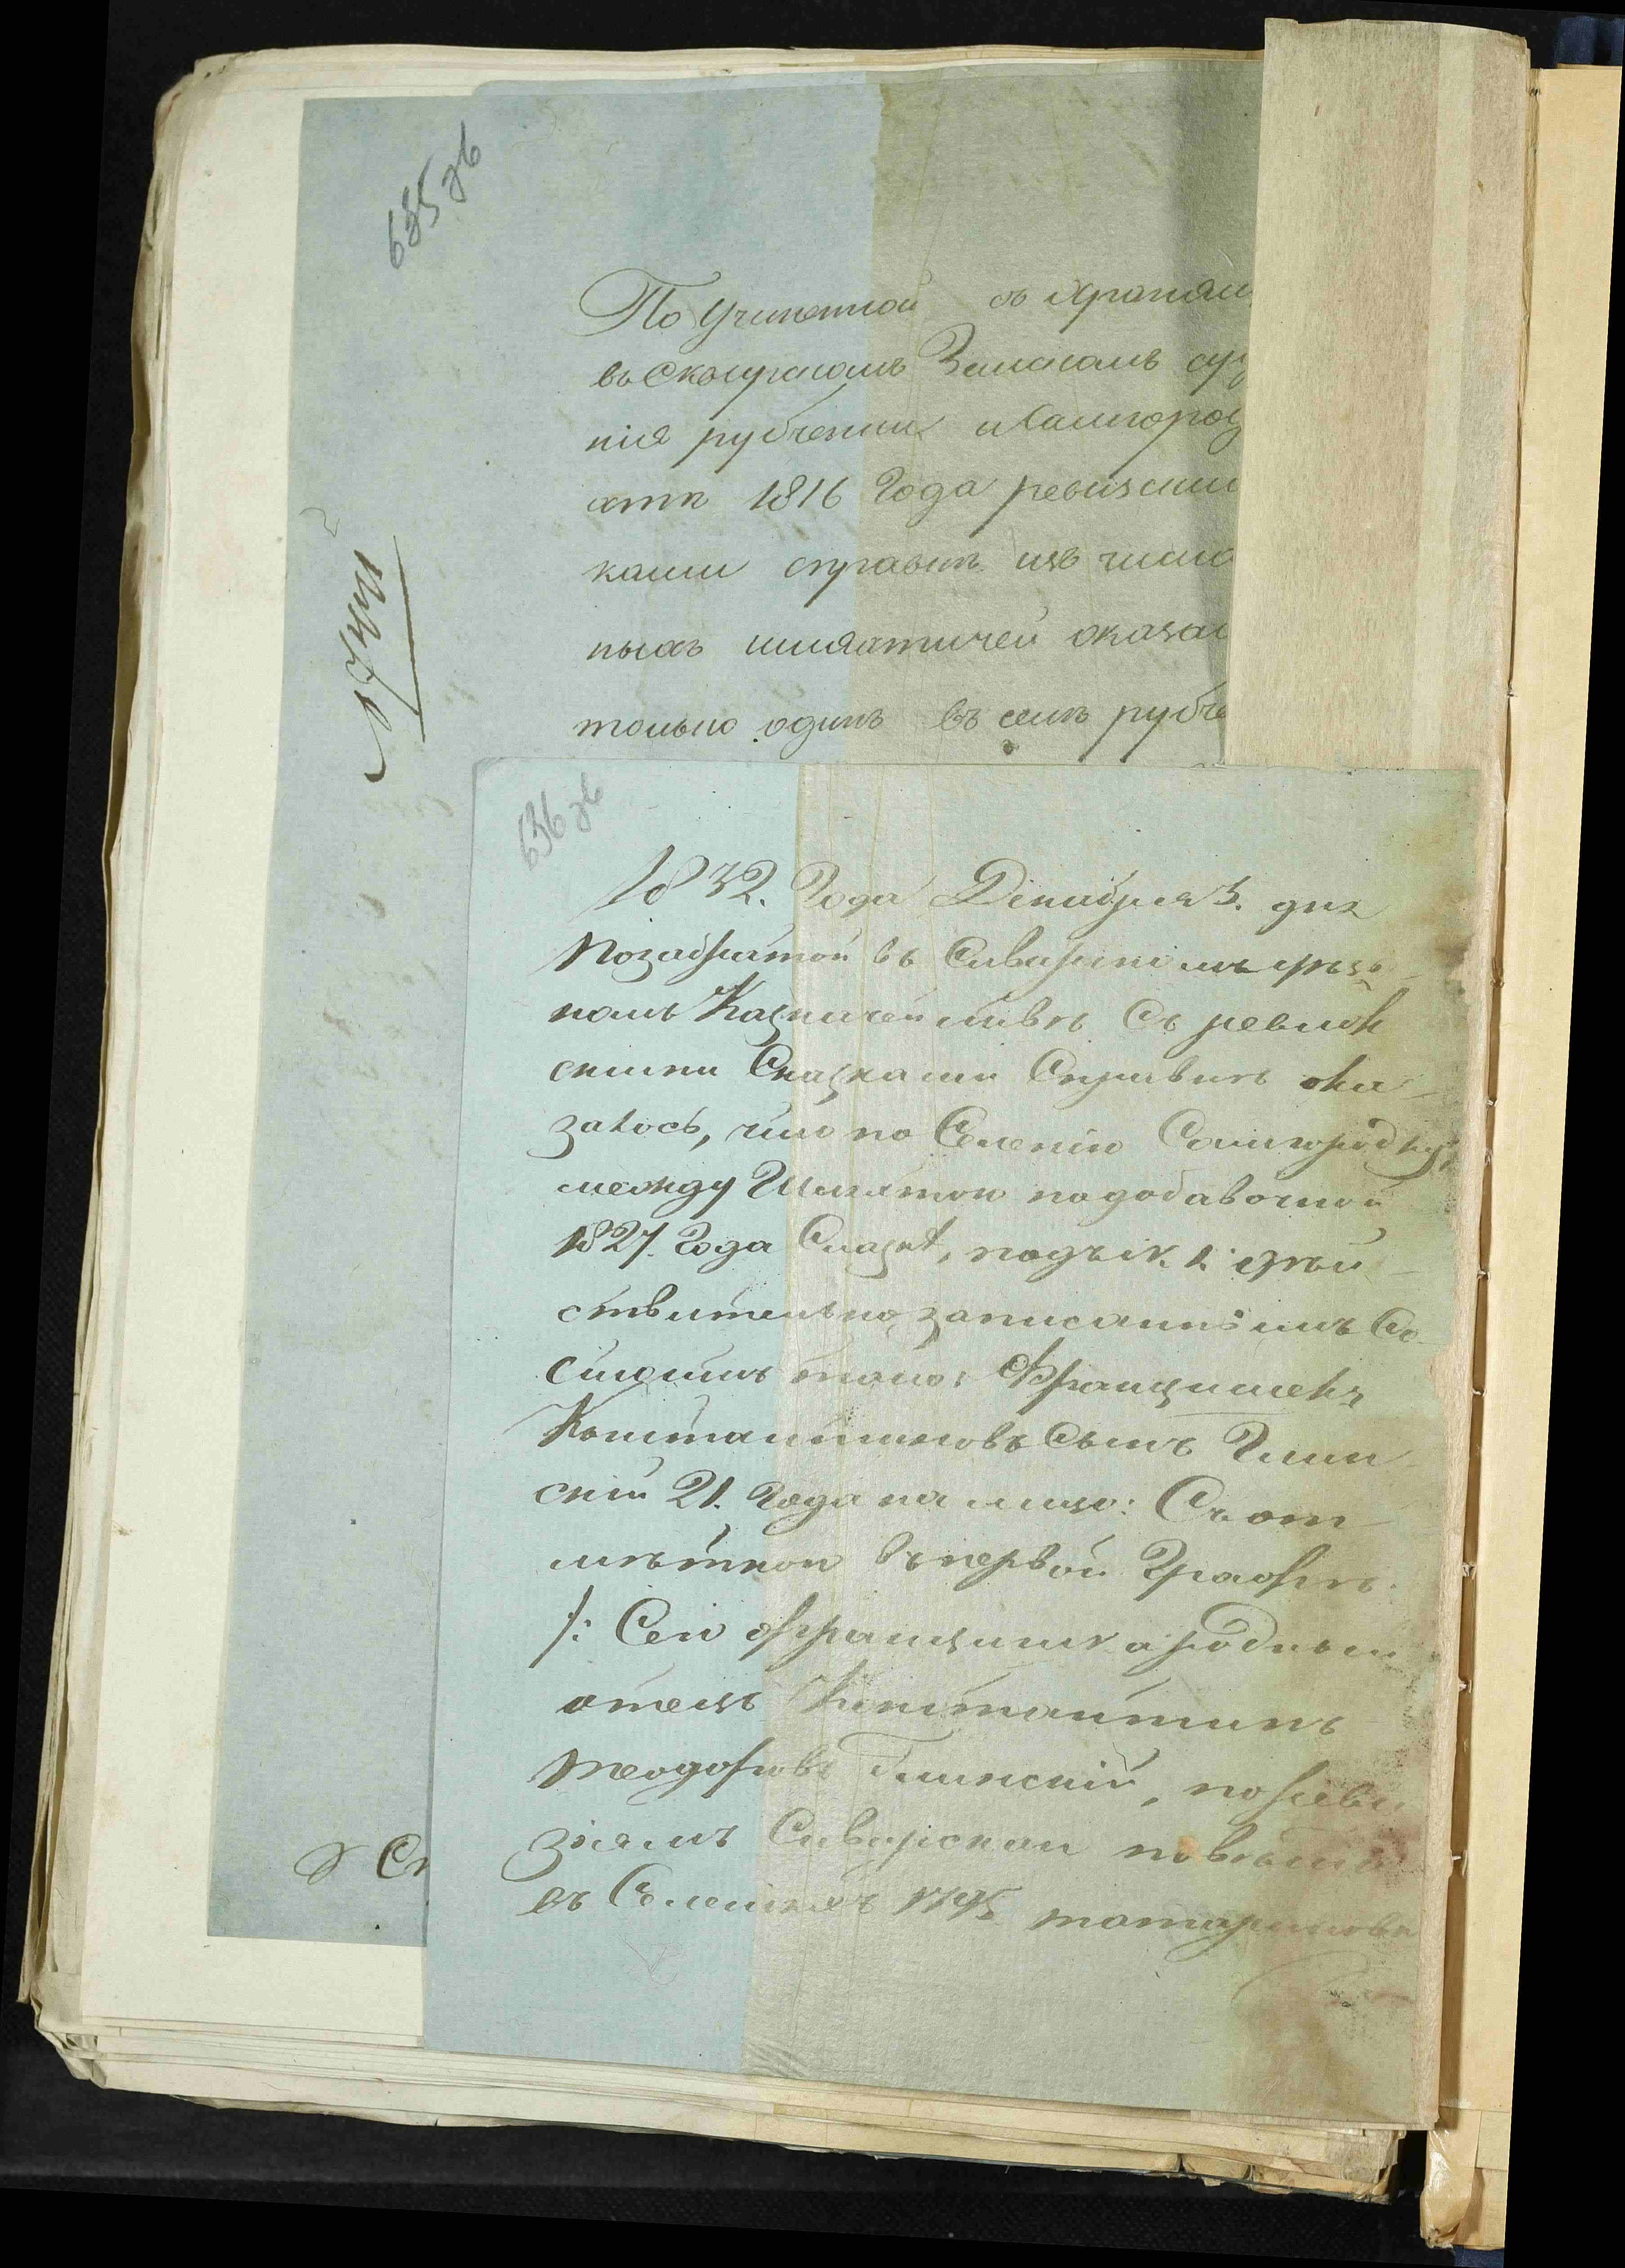 635 зв
По Учиненной съ хранящ
въ Сквирскомъ Земскомъ су
нія рубченки и Самгород
ати 1816 Года ревизским
ками справкѣ изъ числа
ныхъ шляхтичей оказал
только одинъ въ семъ рубче
636 зв
1832. Года Декабря 3. дня
По забратой въ Сквирскомъ уѣзд
номъ Казначействѣ Съ ревизк
скими Сказками Справкѣ ока
залось, что по Селенію Самгородку,
между Шляхтою по добавочной
1827. Года Сказкѣ, подъ № 1. дѣй
ствительно записаннымъ Со
стоитъ тако: Францишекъ
Константиновъ Сынъ Глин
скій 21. Года на лицо: Съ от
мѣткою въ первой Графѣ
/: Сего Францишка родный
отецъ Константинъ
Теодоровъ Глинскій, по реви
зіямъ Сквирскаго повѣта
въ Селеніяхъ 1795 татариновкѣ